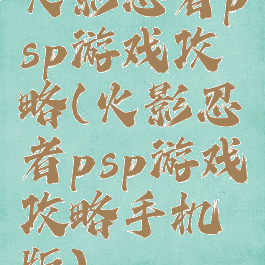 火影忍者p
sp游戏攻
略(火影忍
者psp游戏
攻略手机
版)